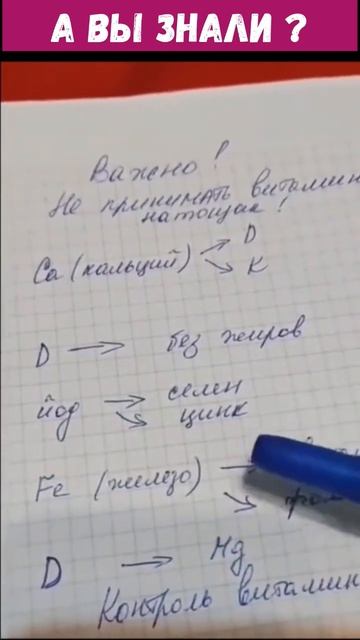 А ВЫ ЗНАЛИ ?
Важно!
Не принимать витамин
натощак!
Ca (кальций) → D
→ K
D → без жиров
йод → селен
→ цинк
Fe (железо) →
→
D → Mg
Контроль витамин